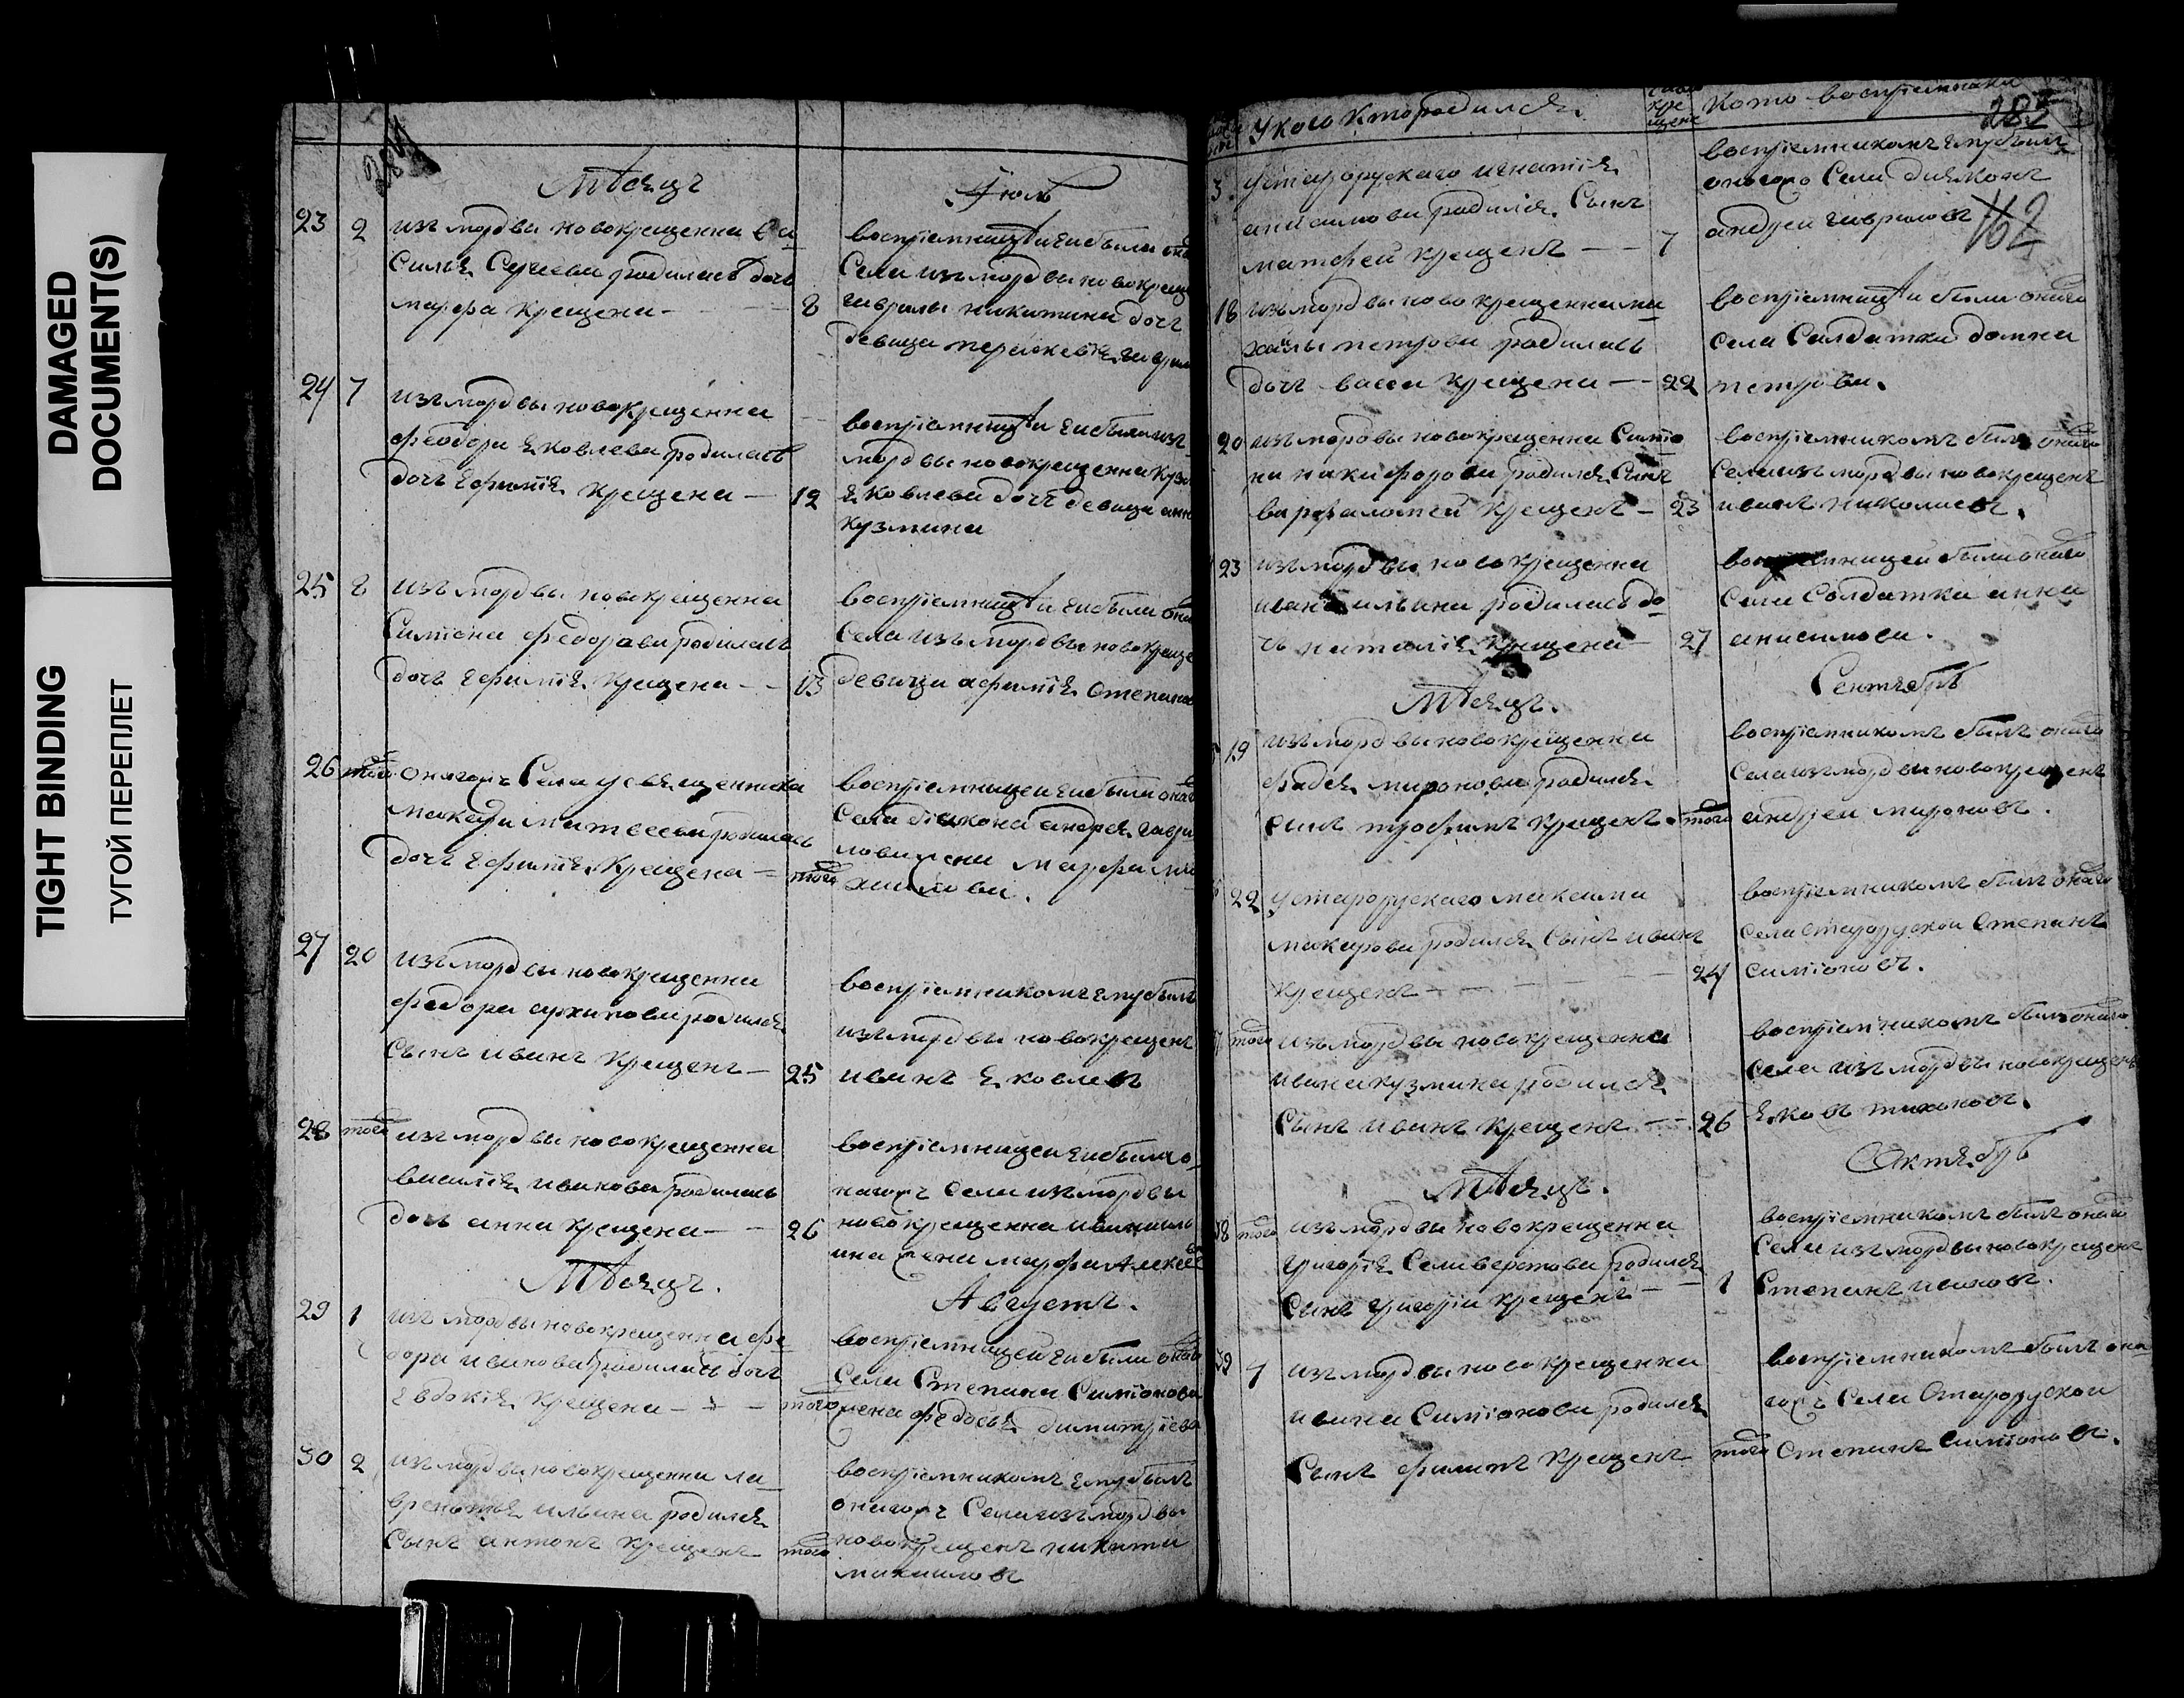 DAMAGED
DOCUMENT(S)
TIGHT BINDING
ТУГОЙ ПЕРЕПЛЕТ
284
Мѣсяцъ
Іюль
23 2 изъ мордвы новокрещенна Ва
силья Сергеева родилась дочь
марѳа крещена 8
восприемницѣи еи была она
Села изъ мордвы новокреще
гаврилы никитина дочь
девица перасковия гаврил
24 7 изъ мордвы новокрещенна
феодора яковлева родилась
дочь ефимия крещена 12
восприемницѣи еи была изъ
мордвы новокрещенна кузм
яковлева дочь девица анн
кузмина
25 8 изъ мордвы новокрещенна
Симиона федорова родилась
дочь ефимия крещена 13
восприемницѣи еи была она
Села изъ мордвы новокреще
девица афимия Степанов
26 того онагожъ Села у священника
макара матвеева родилась
дочь ефимия крещена того
восприемницеи еи была онаго
Села диакона андрея гаври
ловa жена марфа ми
хаилова.
27 20 изъ мордвы новокрещенна
федора архипова родился
Сынъ иванъ крещенъ 25
восприемникомъ ему былъ
изъ мордвы новокрещенъ
иванъ яковлевъ
28 того изъ мордвы новокрещенна
василия иванова родилась
дочь анна крещена 26
восприемницеи еи была о
нагожъ Села изъ мордвы
новокрещенна ивана иль
ина жена марфа Алексеева
Мѣсяцъ.
Августъ.
29 1 изъ мордвы новокрещенна фе
дора иванова родилась дочь
евдокия крещена того
восприемницеи еи была онаго
Села Степана Симионова
жена федосья димитриева
30 2 изъ мордвы новокрещенна ла
врентья ильина родился
Сынъ антонъ крещенъ того
восприемникомъ ему былъ
онагожъ Села изъ мордвы
новокрещенъ никита
михаиловъ
У кого кто родился.
кре
щенъ
Кто восприемники
282
162
3 у старорускаго игнатия
анисимова родился Сынъ
матфеи крещенъ 7
восприемникомъ ему былъ
онагожо Села дияконъ
андреи гавриловъ
18 изъ мордвы новокрещенна ми
хаилы петрова родилась
дочь васса крещена 22
восприемницѣи была онаго
села Салдатка домна
петрова.
20 изъ мордвы новокрещенна Симио
на никифорова родился Сынъ
варфаломеи крещенъ 23
восприемникомъ былъ онаго
Села изъ мордвы новокрещенъ
иванъ николаевъ.
23 изъ мордвы новокрещенна
ивана ильина родилась до
чь наталия крещена 27
восприемницеи была онаго
Села Солдатка анна
анисимова.
Мѣсяцъ.
Сентябрь
19 изъ мордвы новокрещенна
фадея миронова родился
Сынъ трофимъ крещенъ того
восприемникомъ былъ онаго
Села изъ мордвы новокрещенъ
андреи мироновъ.
22 у старорускаго максима
макарова родился Сынъ иванъ
крещенъ 24
восприемникомъ былъ онаго
Села старорускои Степанъ
симионовъ.
того изъ мордвы новокрещенна
ивана кузмина родился
Сынъ иванъ крещенъ 26
восприемникомъ былъ онаго
Села изъ мордвы новокрещенъ
яковъ тихоновъ.
Мѣсяцъ.
Октябрь
38 того изъ мордвы новокрещенна
григория Селиверстова родился
Сынъ григории крещенъ 1
восприемникомъ былъ онаго
Села изъ мордвы новокрещенъ
Степанъ ивановъ.
39 7 изъ мордвы новокрещенна
ивана Симионова родился
Сынъ филипъ крещенъ того
восприемникомъ былъ она
гожъ Села Старорускои
Степанъ Симионовъ.